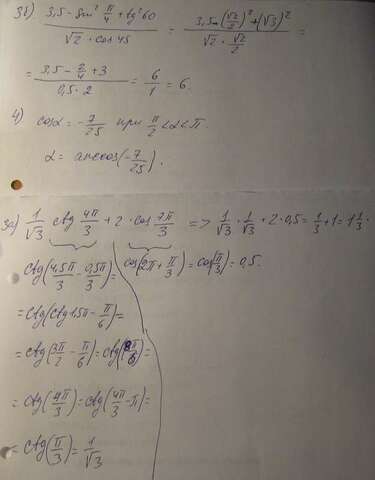 3в) (3,5 - Sin² π/4 + tg² 60) / (√2 · cos 45) = (3,5 - (√2/2)² + (√3)²) / (√2 · √2/2) =
= (3,5 - 2/4 + 3) / (0,5 · 2) = 6/1 = 6
4) cosα = -7/25 при π/2 < α < π.
α = arccos(-7/25).
3а) 1/√3 ctg 4π/3 + 2 · cos 7π/3 => 1/√3 · 1/√3 + 2 · 0,5 = 1/3 + 1 = 1 1/3.
ctg(4,5π/3 - 0,5π/3) = cos(2π + π/3) = cos(π/3) = 0,5.
= ctg(ctg 1,5π - π/6) =
= ctg(3π/2 - π/6) = ctg(8π/6) =
= ctg(4π/3) = ctg(4π/3 - π) =
= ctg(π/3) = 1/√3